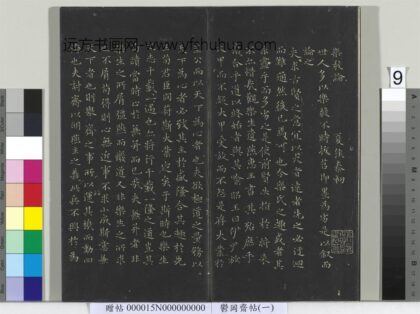 遠方书画网-www.yfshuhua.com
樂毅論 夏侯泰初
世人多以樂毅不時拔莒即墨為劣是以敘而
論之
夫求古賢之意宜以大者遠者先之必迂迴
而難通然後已焉可也今樂氏之趣或者其
未盡乎而多劣之是使前賢失指於將來
不亦惜哉觀樂生遺燕惠王書其殆庶乎
機合乎道以終始者與其喻昭王曰伊尹放
大甲而不疑大甲受放而不怨是存大業於
至公而以天下為心者也夫欲極道之量務以
天下為心者必致其主於盛隆合其趣於先
王苟君臣同符斯大業定矣于斯時也樂生之
志千載一遇也亦將行千載一隆之道豈其
局蹟當時止於兼并而已哉夫兼并者非
樂生之所屑彊燕而廢道又非樂生之所求
也不屑苟得則心無近事不求小成斯意兼
天下者也則舉齊之事所以運其機而動四
海也夫討齊以明燕主之義此兵不興於為
9
贈帖 000015N000000000 鬱岡齋帖(一)